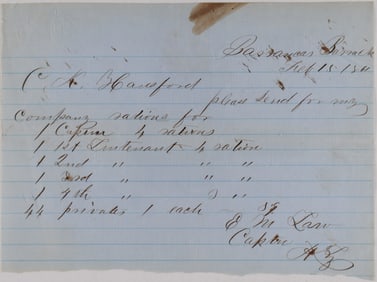 Barrancas Barracks
Feb 15 186
C N. Hansford
please send for my
Company rations for
1 Captin 4 rations
1 1st Lieutenant 4 ration
1 2nd " " "
1 3rd " " "
1 4th " 3 "
44 privates 1 each 59
E M Law
Captin